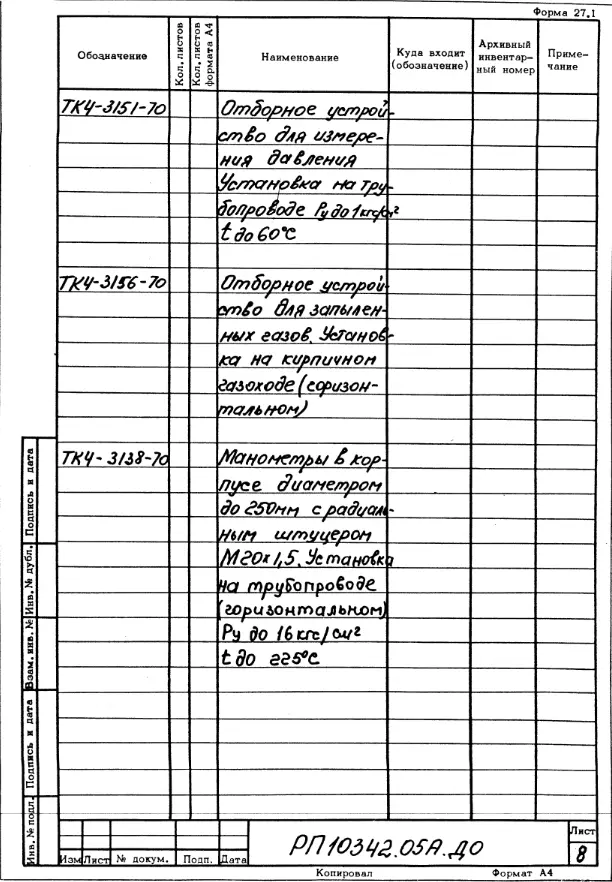 Форма 27.1
Обозначение
Кол. листов
Кол. листов формата А4
Наименование
Куда входит (обозначение)
Архивный инвентарный номер
Примечание
ТК4-3151-70
Отборное устрой-
ство для измере-
ния давления
Установка на тру-
бопроводе Ру до 1кгс/см²
t до 60°С
ТК4-3156-70
Отборное устрой-
ство для запылен-
ных газов. Установ-
ка на кирпичном
газоходе (горизон-
тальном)
ТК4-3138-70
Манометры в кор-
пусе диаметром
до 250мм с радиаль-
ным штуцером
М20×1,5. Установка
на трубопроводе
(горизонтальном)
Ру до 16 кгс/см²
t до 225°С
Подпись и дата
Инв. № дубл.
Взам. инв. №
Подпись и дата
Инв. № подл.
Изм Лист № докум. Подп. Дата
РП10342.05А.ДО
Лист
8
Копировал
Формат А4